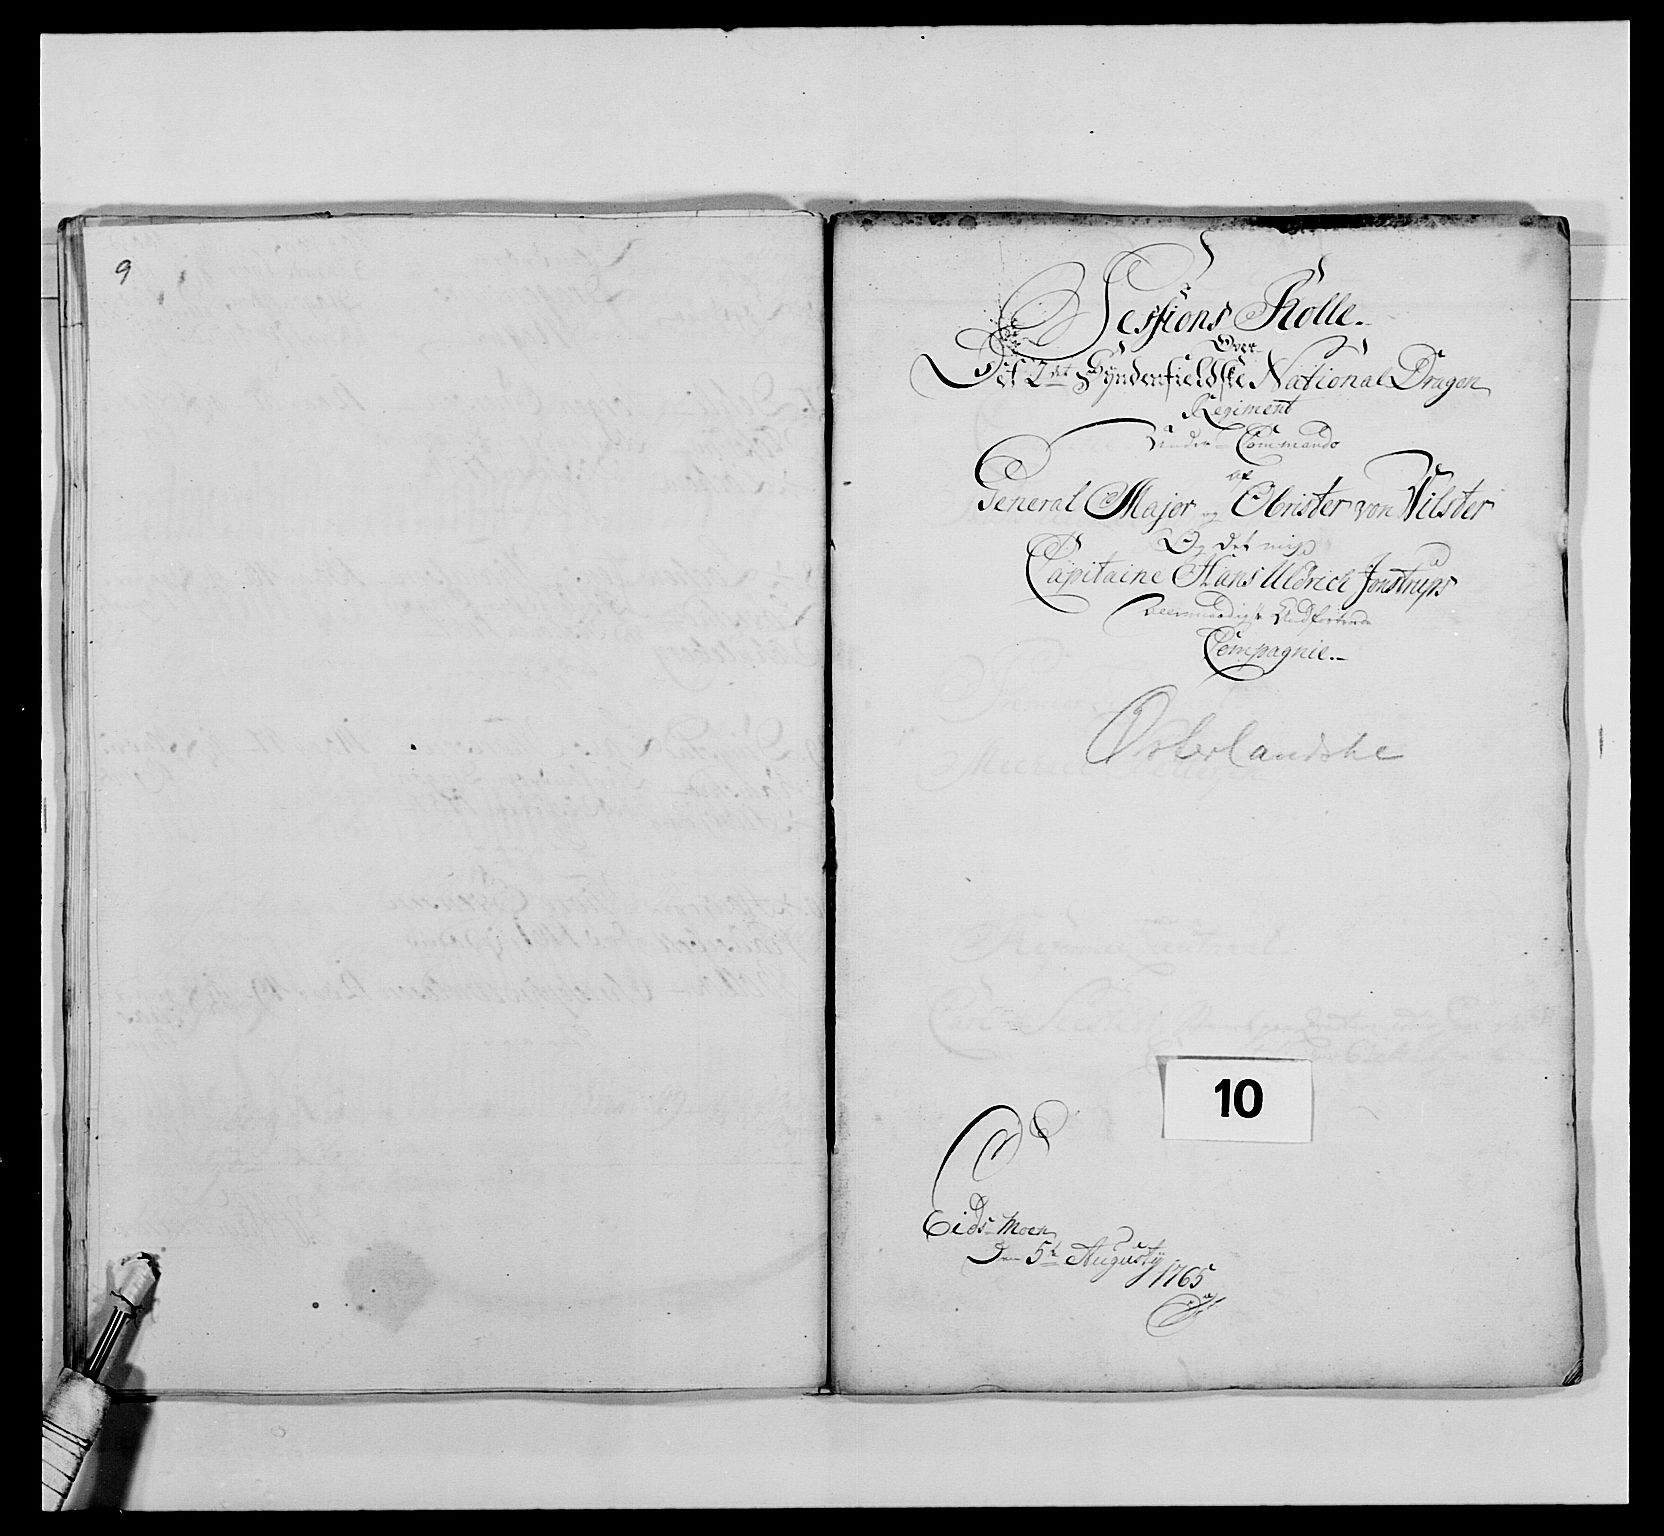 9
Sessions Rolle.
Over
Det 2det Syndenfieldske National Dragon
Regiment
Under Commando
af
General Major og Obrister von Vilster
Og det mig
Capitaine Hans Uldrich Jonstrups
Compagnie.
Østerlandske
10
Eids Moen
Den 5te Augusty
1765